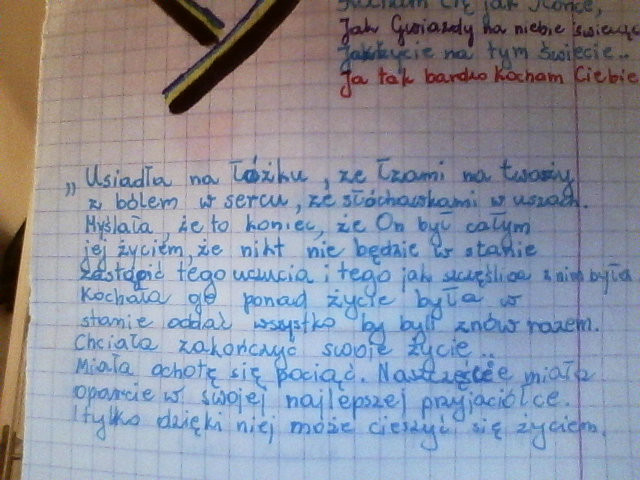 Kocham Cię jak słońce,
Jak Gwiazdy na niebie świecące
Jak życie na tym świecie..
Ja tak bardzo kocham Ciebie
„Usiadła na łóżku, ze łzami na tważy
z bólem w sercu, ze słóchawkami w uszach.
Myślała, że to koniec, że On był całym
jej życiem, że nikt nie będzie w stanie
zastąpić tego uczucia i tego jak szczęśliwa z nim była
Kochała go ponad życie była w
stanie oddać wszystko by byli znów razem.
Chciała zakończyć swoje życie..
Miała ochotę się pociąć. Naszczęście miała
oparcie w swojej najlepszej przyjaciółce.
I tylko dzięki niej może cieszyć się życiem.